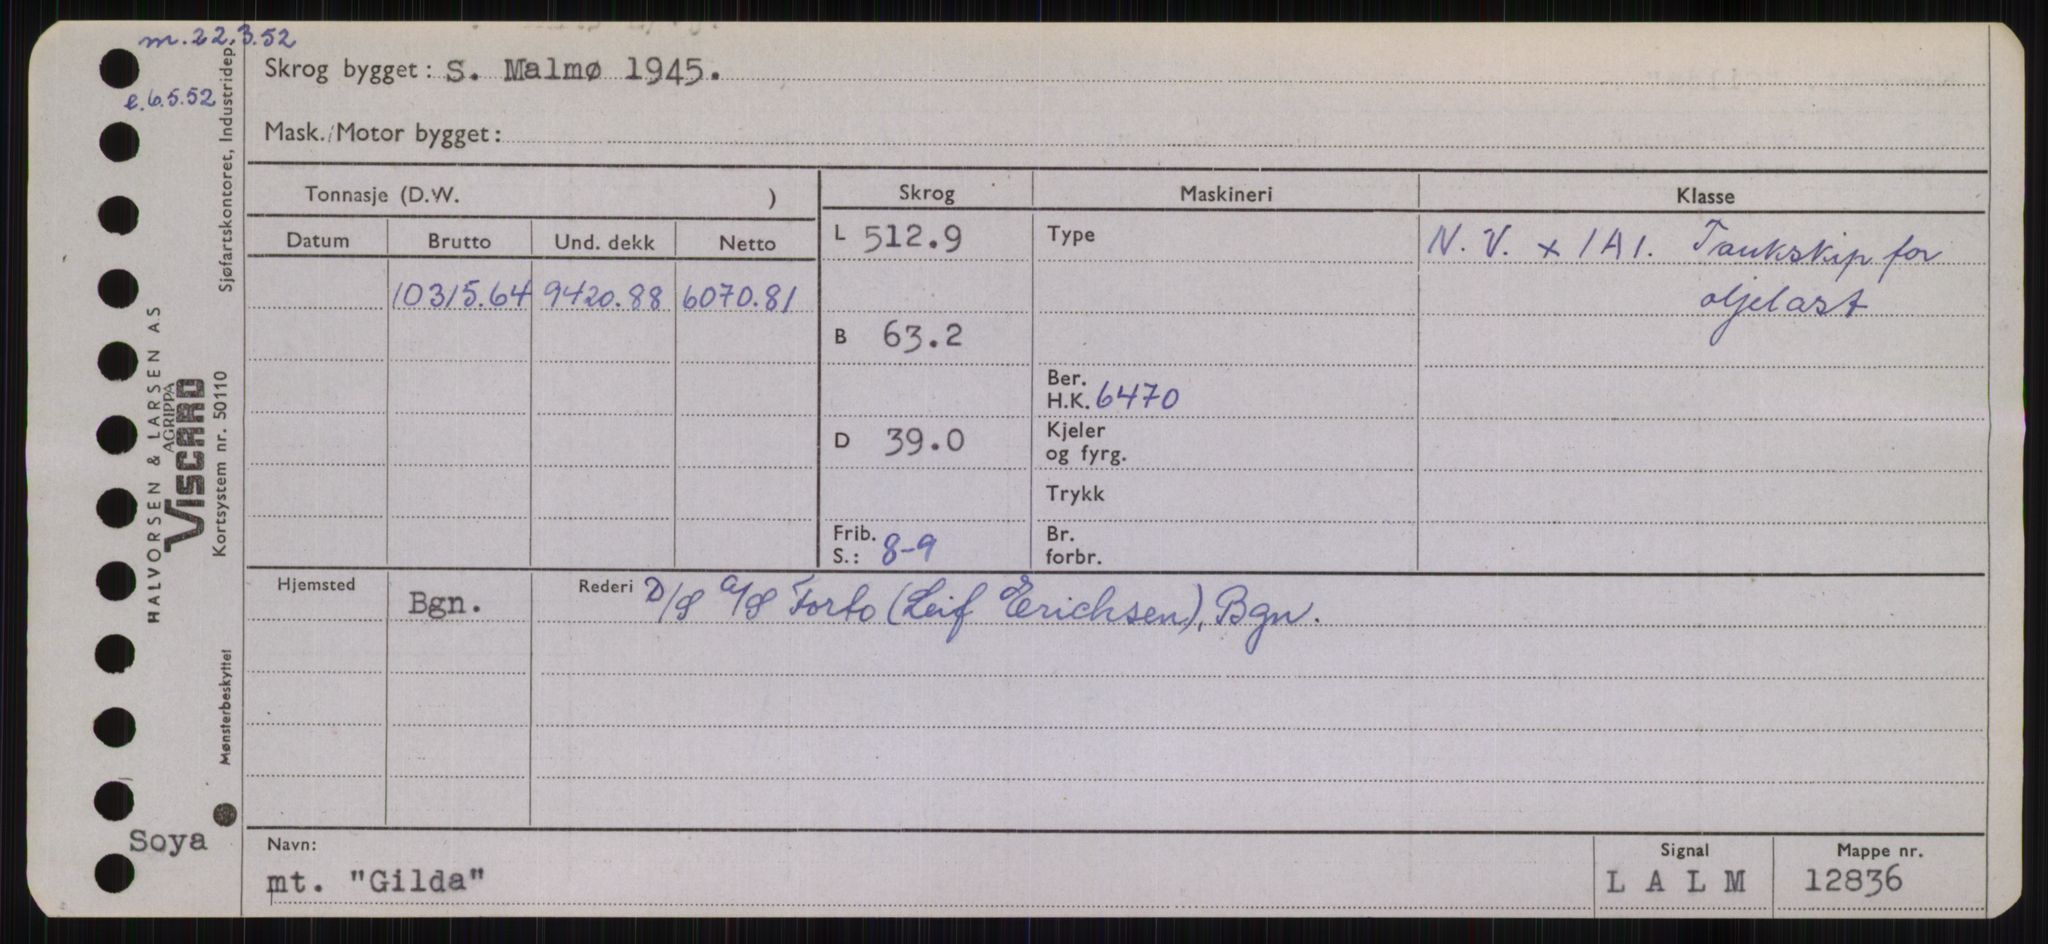 m. 22.3.52
e. 6.5.52
Skrog bygget: S. Malmø 1945.
Mask./Motor bygget:
Tonnasje (D.W. )
Skrog
Maskineri
Klasse
Datum Brutto Und. dekk Netto
L 512.9
Type
N. V. + 1A1. Tankskip for
oljelast
10315.64 9420.88 6070.81
B 63.2
Ber.
H.K. 6470
D 39.0
Kjeler
og fyrg.
Trykk
Frib.
S.: 8-9
Br.
forbr.
Hjemsted Bgn. Rederi D/S A/S Forto (Leif Erichsen), Bgn.
Navn:
mt. "Gilda"
Signal
L A L M
Mappe nr.
12836
Soya
HALVORSEN & LARSEN AS
AGRIPPA
VISCARD
Mønsterbeskyttet Kortsystem nr. 50110 Sjøfartskontoret, Industridep.